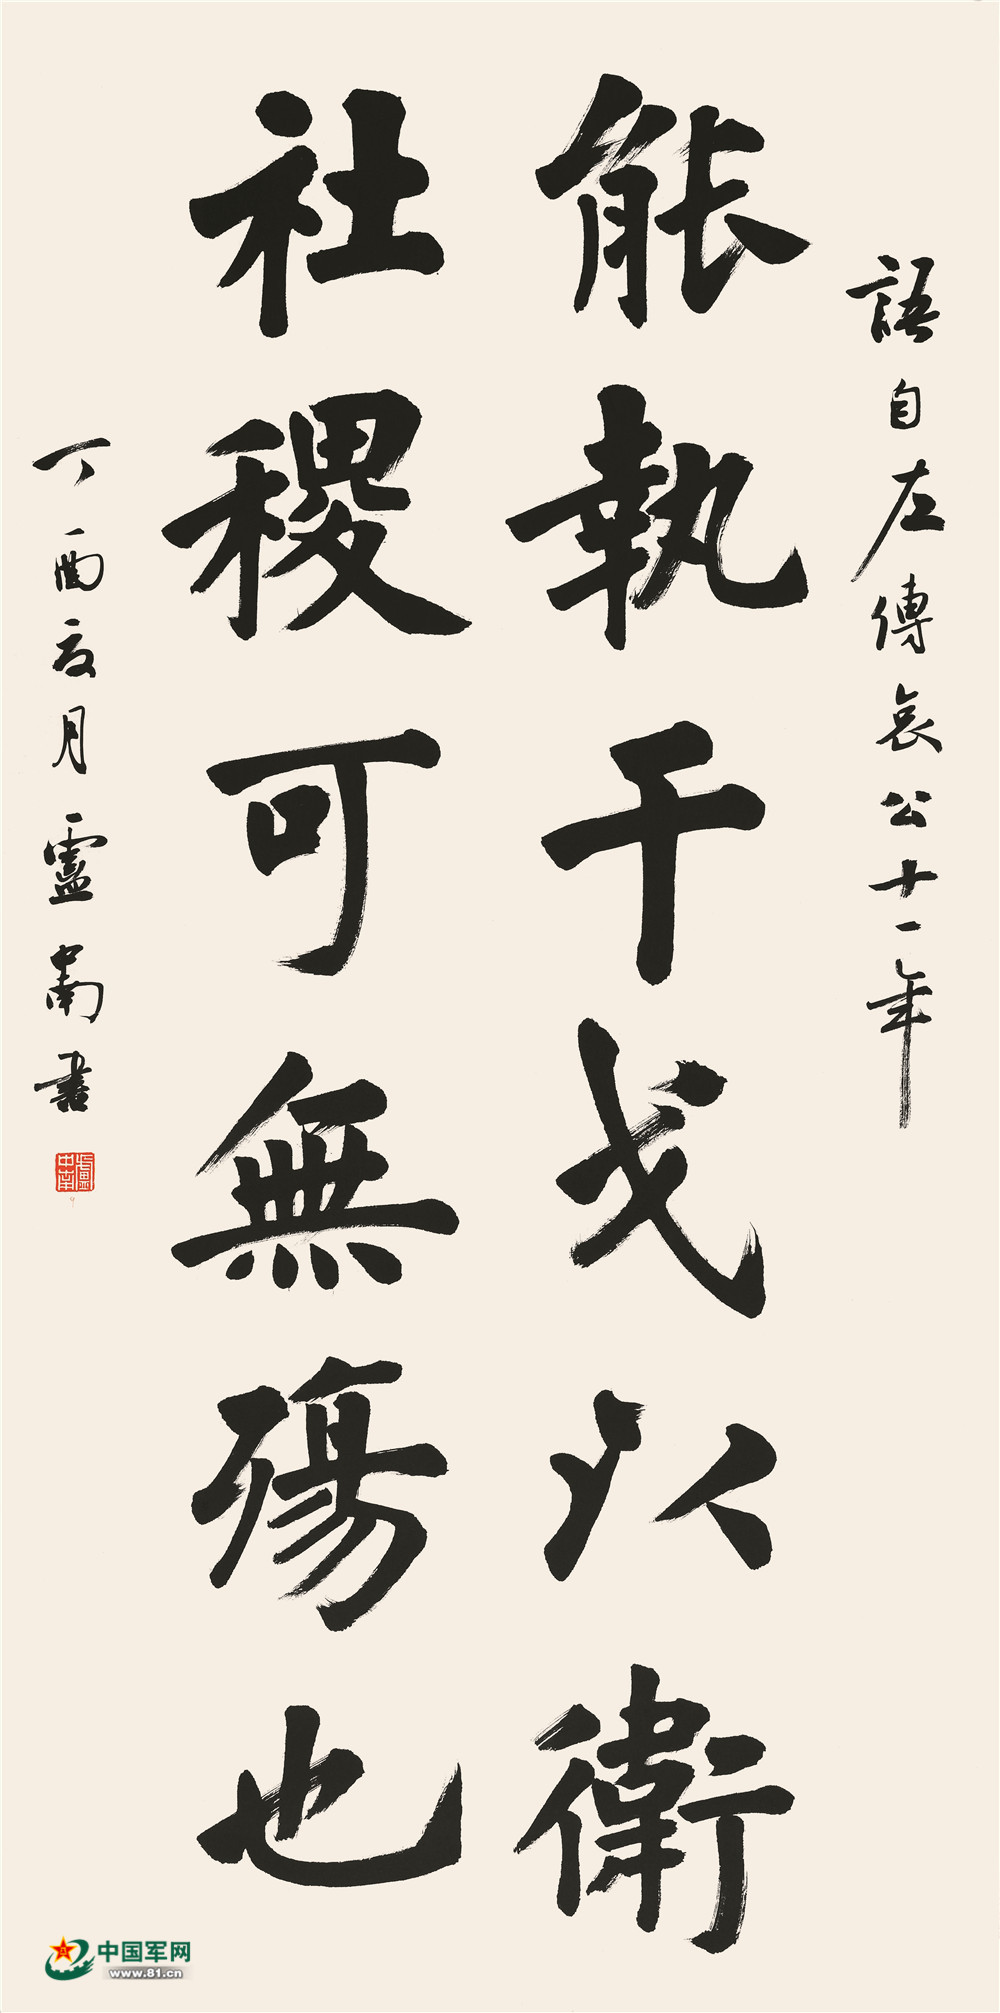 語自左傳哀公十一年
能執干戈以衛
社稷可無殤也
丁酉夏月盧中南書
盧中南
中国军网
www.81.cn